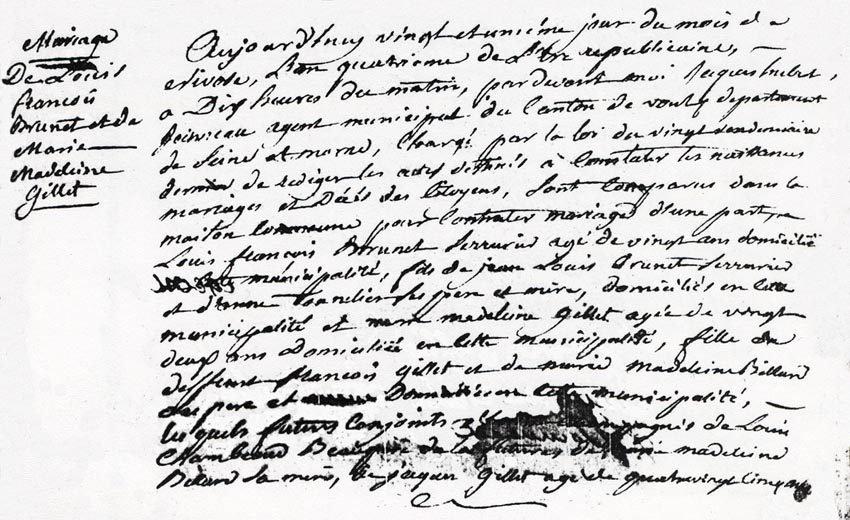 Mariage
De Louis
françois
Brunet et de
Marie
Madeleine
Gillet
Aujourd'huy vingt et unième jour du mois de
nivose, L'an quatrieme de L'ere republicaine,
a Dix heures du matin, pardevant moi Jacques hubert,
agent municipal du Canton de voulx departement
de Seine et marne, Chargé par la loi du vingt vendemiaire
dernier de rediger les actes destinés a Constater les naissances
mariages et Décés des Citoyens, sont Comparus dans la
maison Commune pour Contracter mariage d'une part,
Louis françois Brunet Serrurier agé de vingt ans domicilié
municipalité, fils de jean Louis Brunet Serrurier
et d'anne ses pere et mère, domiciliés en cette
municipalité et madeleine Gillet agée de vingt
deux ans Domiciliée en cette municipalité, fille du
deffunt françois Gillet et de marie madeleine Billard
ses pere et en cette municipalité,
lesquels futurs Conjoints de Louis
madeleine
sa mere, de jacques Gillet agé de quatrevingt cinq ans